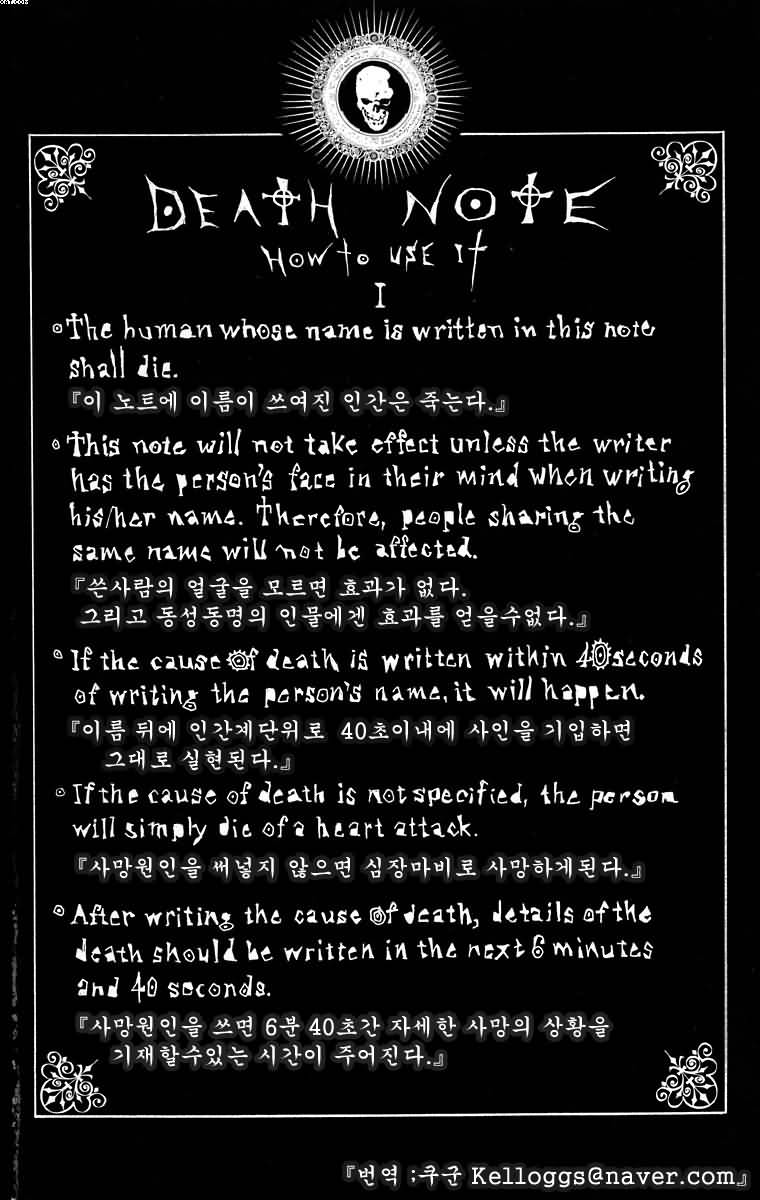 DEATH NOTE
HOW TO USE IT
I
The human whose name is written in this note
shall die.
『이 노트에 이름이 쓰여진 인간은 죽는다.』
This note will not take effect unless the writer
has the person's face in their mind when writing
his/her name. Therefore, people sharing the
same name will not be affected.
『쓴사람의 얼굴을 모르면 효과가 없다.
그리고 동성동명의 인물에겐 효과를 얻을수없다.』
If the cause of death is written within 40 seconds
of writing the person's name, it will happen.
『이름 뒤에 인간계단위로 40초이내에 사인을 기입하면
그대로 실현된다.』
If the cause of death is not specified, the person
will simply die of a heart attack.
『사망원인을 써넣지 않으면 심장마비로 사망하게된다.』
After writing the cause of death, details of the
death should be written in the next 6 minutes
and 40 seconds.
『사망원인을 쓰면 6분 40초간 자세한 사망의 상황을
기재할수있는 시간이 주어진다.』
『번역 ;쿠군 Kelloggs@naver.com』